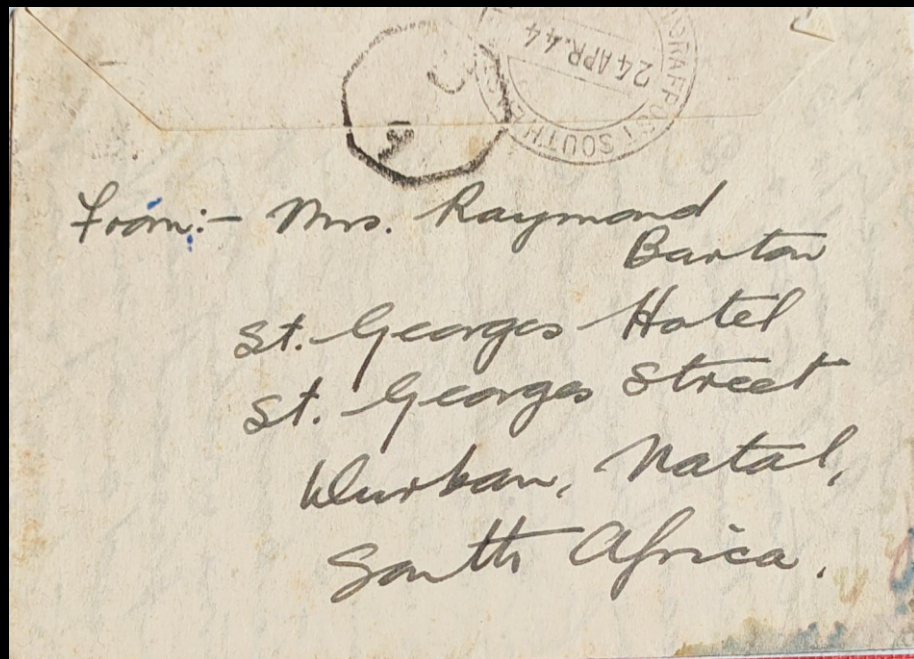 24 APR. 44
SOUTH
From:- Mrs. Raymond
Barton
St. Georges Hotel
St. Georges Street
Durban, Natal,
South Africa.